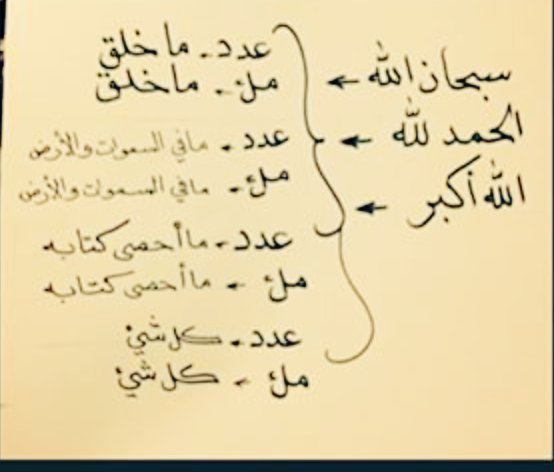 سبحان الله
الحمد لله
الله أكبر
عدد - ما خلق
ملء - ما خلق
عدد - ما في السموات والأرض
ملء - ما في السموات والأرض
عدد - ما أحصى كتابه
ملء - ما أحصى كتابه
عدد - كل شيئ
ملء - كل شيئ